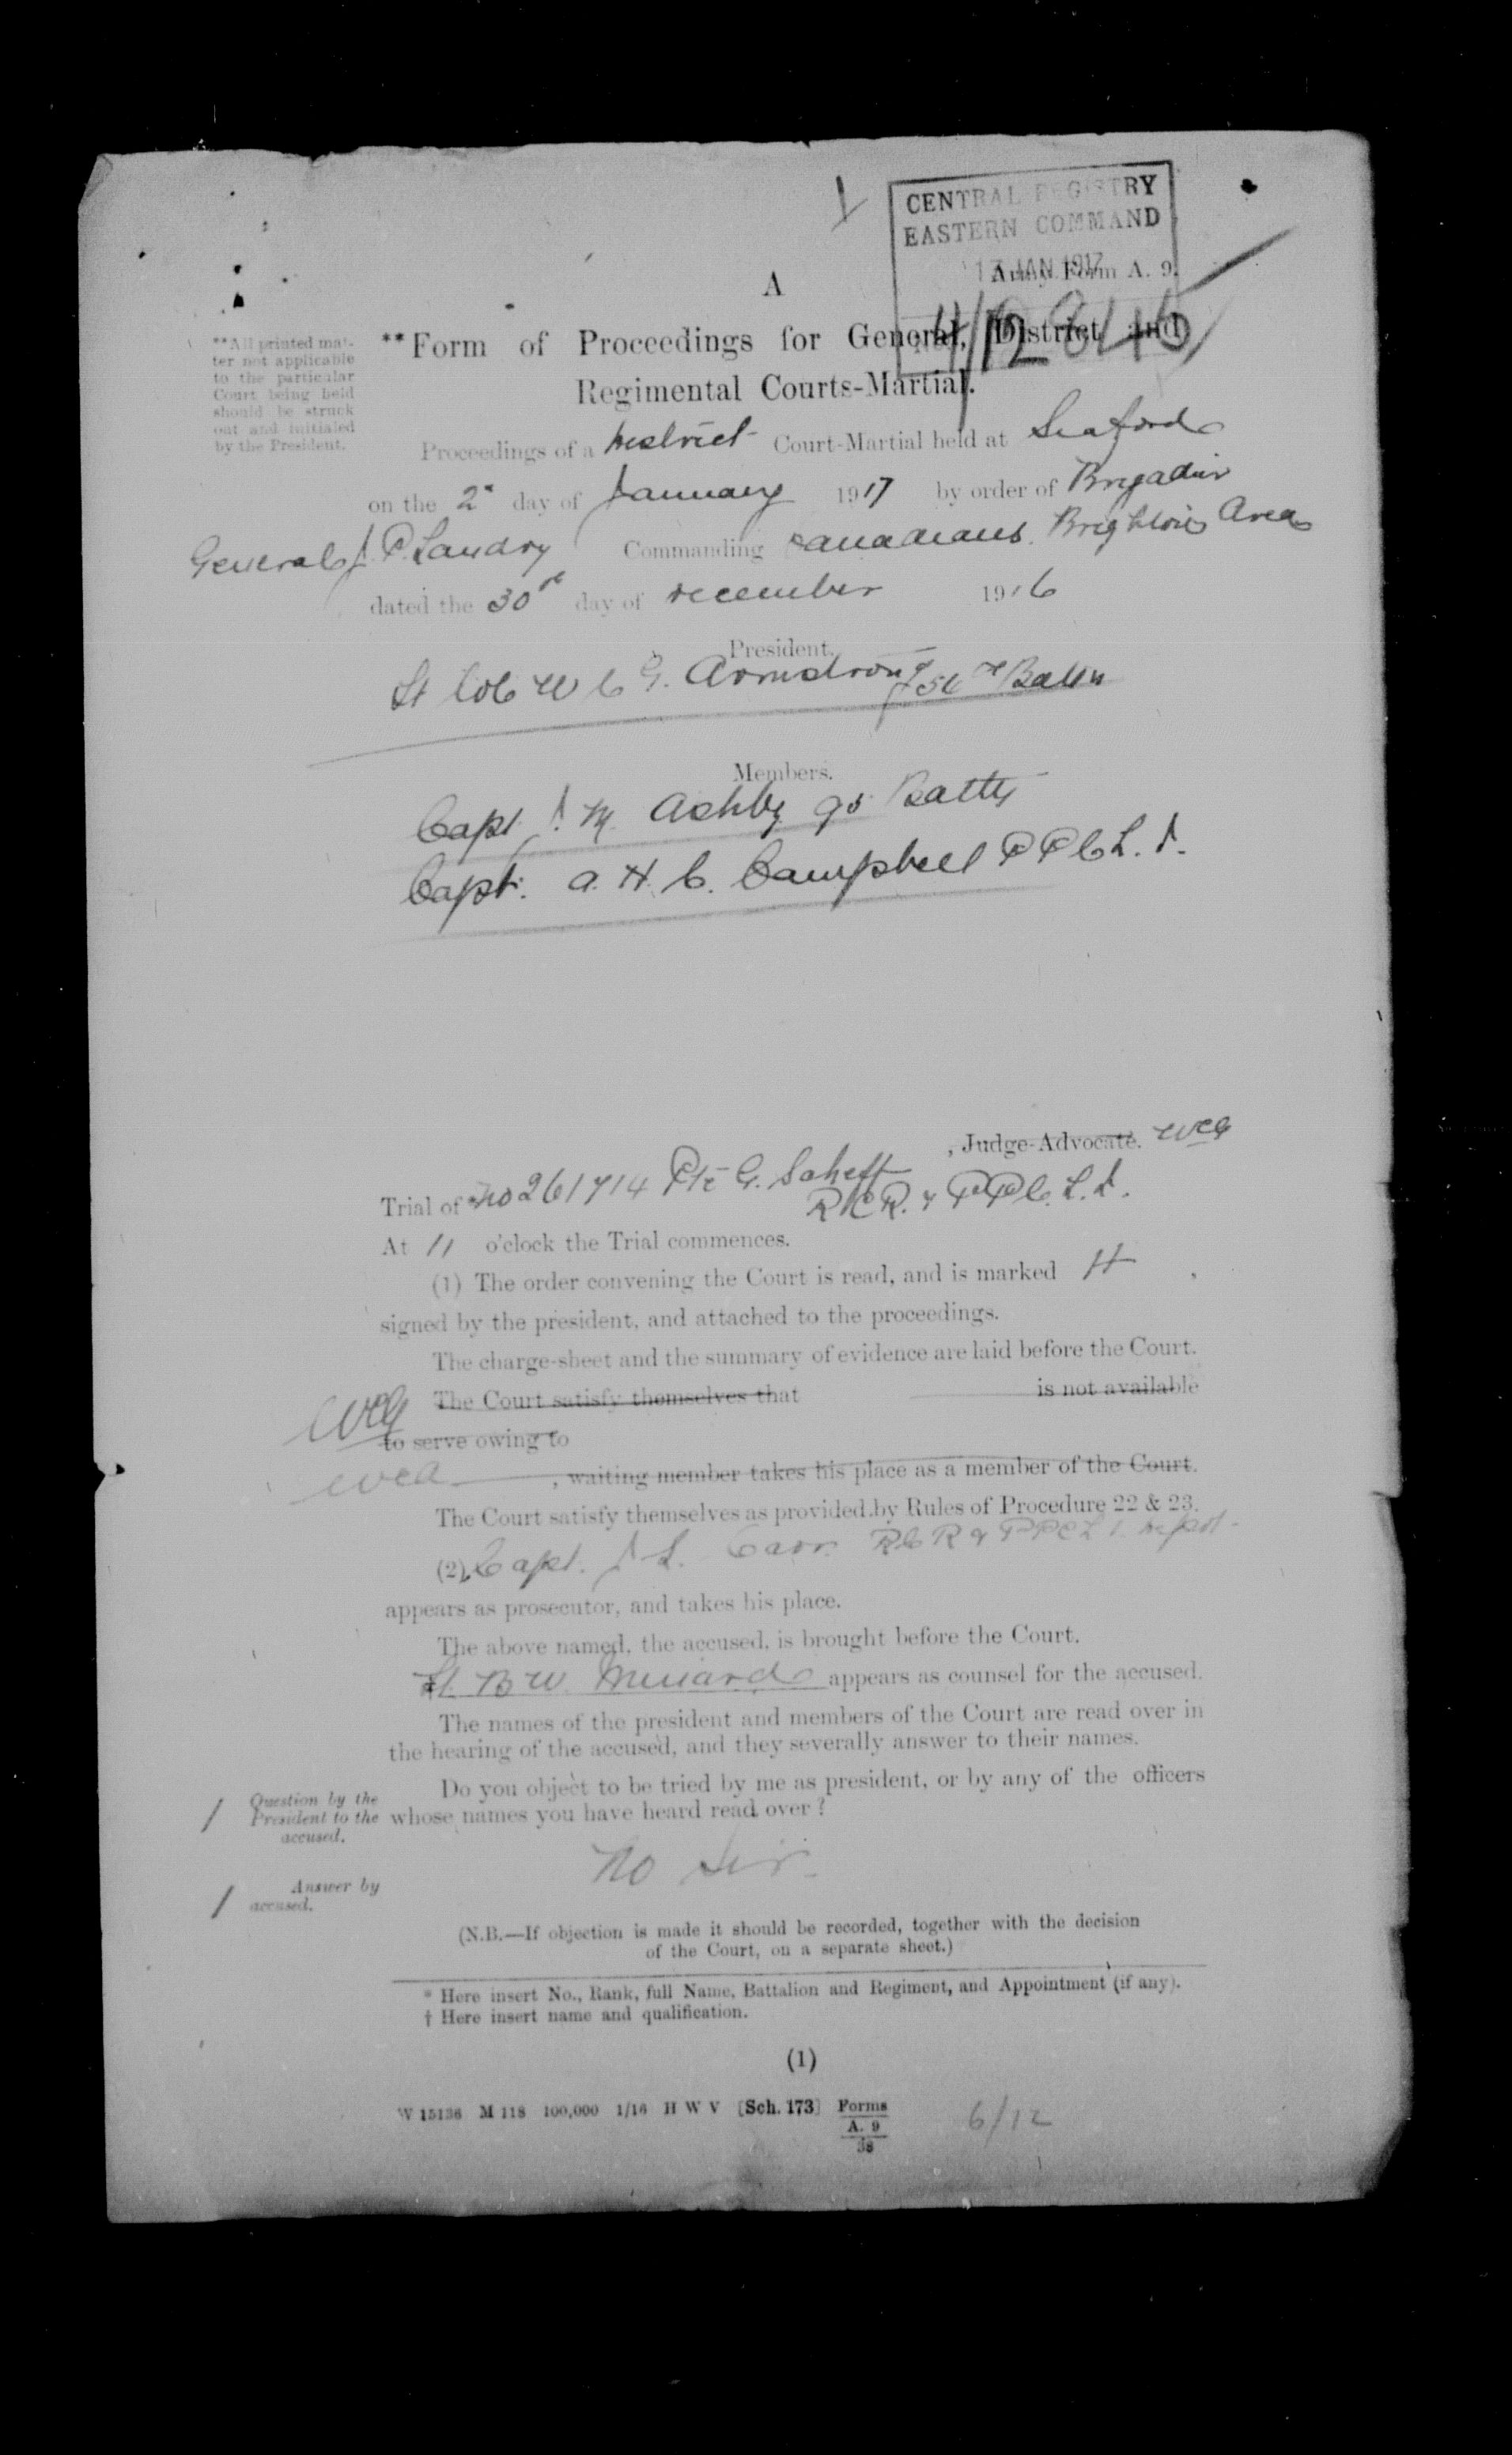 CENTRAL REGISTRY
EASTERN COMMAND
17 JAN 1917
Army Form A. 9.
A
**All printed mat-
ter not applicable
to the particular
Court being held
should be struck
out and initialed
by the President.
**Form of Proceedings for General, District and
Regimental Courts-Martial.
Proceedings of a District Court-Martial held at Seaford
on the 2nd day of January 1917 by order of Brigadier
General J. P. Landry Commanding Canadians Brighton Area
dated the 30th day of December 1916
President.
Lt Col W C G. Armstrong 56th Battn
Members.
Capt J. M. Ashby 95 Battn
Capt. A. H. C. Campbell P P C L. I.
, Judge-Advocate. WCG
Trial of *No 261714 Pte G. Saheff
R C R. & P P C. L. I.
At 11 o'clock the Trial commences.
(1) The order convening the Court is read, and is marked H ,
signed by the president, and attached to the proceedings.
The charge-sheet and the summary of evidence are laid before the Court.
The Court satisfy themselves that is not available
to serve owing to
, waiting member takes his place as a member of the Court.
The Court satisfy themselves as provided by Rules of Procedure 22 & 23.
(2) Capt. J L. Carr R C R & P P C L I. Depot
appears as prosecutor, and takes his place.
The above named, the accused, is brought before the Court.
Lt. B W. appears as counsel for the accused.
The names of the president and members of the Court are read over in
the hearing of the accused, and they severally answer to their names.
Question by the
President to the
accused.
Do you object to be tried by me as president, or by any of the officers
whose names you have heard read over?
Answer by
accused.
No Sir
(N.B.—If objection is made it should be recorded, together with the decision
of the Court, on a separate sheet.)
* Here insert No., Rank, full Name, Battalion and Regiment, and Appointment (if any).
† Here insert name and qualification.
(1)
W 15136 M 118 100,000 1/16 H W V [Sch. 173] Forms
A. 9
38
6/12